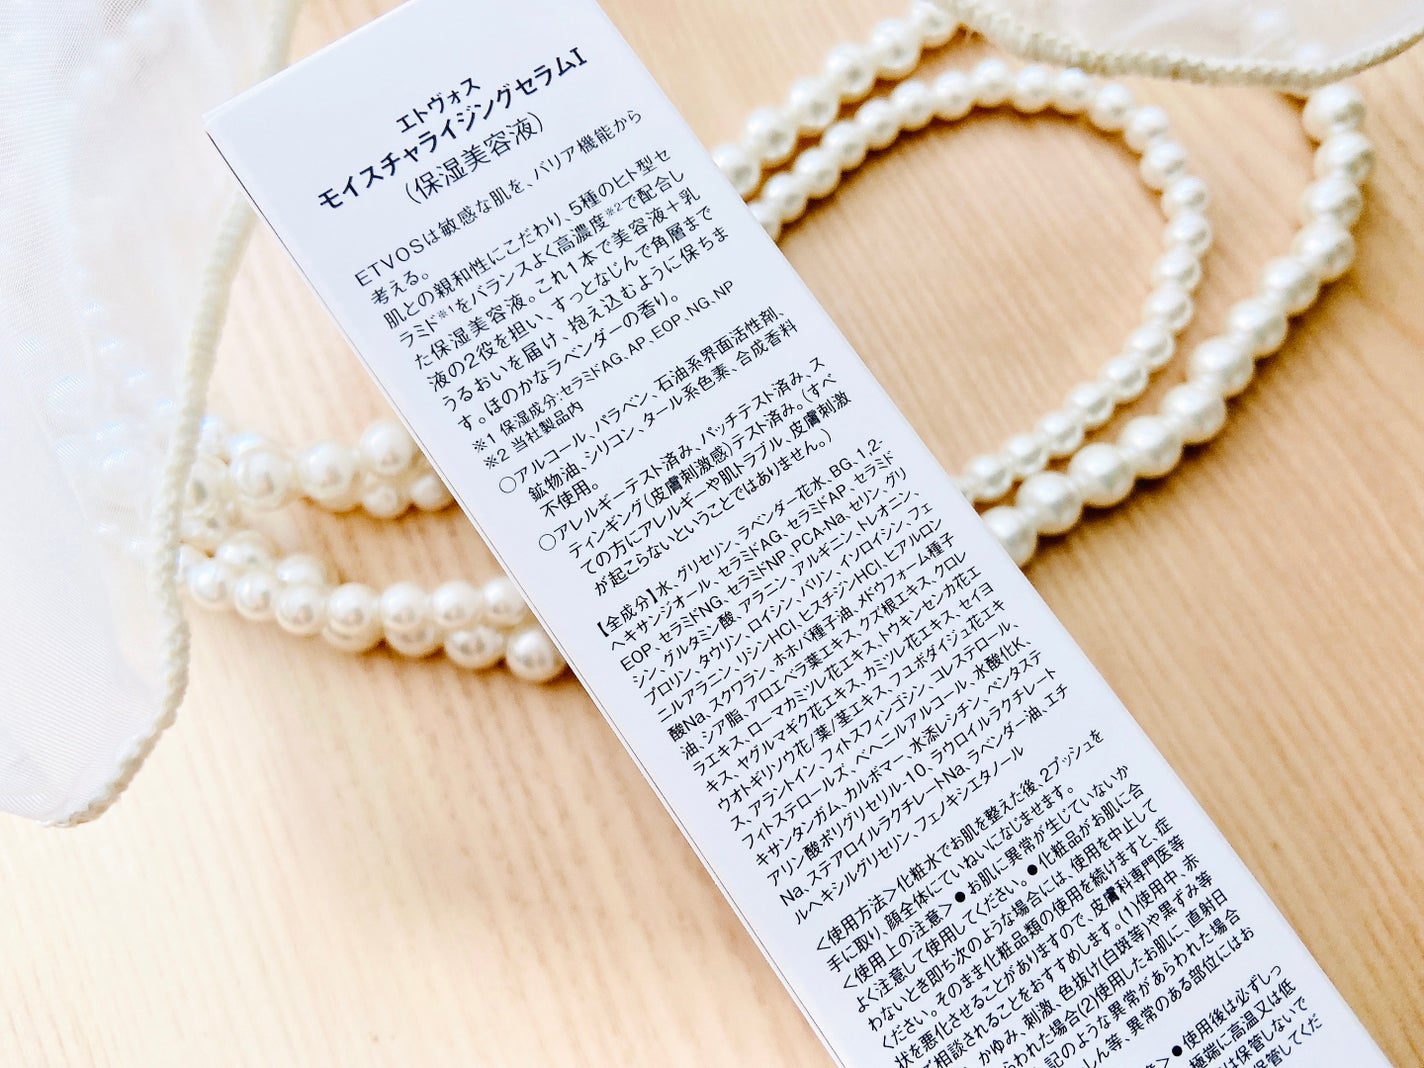 エトヴォス
モイスチャライジングセラムI
(保湿美容液)
ETVOSは敏感な肌を、バリア機能から
考える。
肌との親和性にこだわり、5種のヒト型セ
ラミド※1をバランスよく高濃度※2で配合し
た保湿美容液。これ1本で美容液+乳
液の2役を担い、すっとなじんで角層まで
うるおいを届け、抱え込むように保ちま
す。ほのかなラベンダーの香り。
※1 保湿成分:セラミドAG、AP、EOP、NG、NP
※2 当社製品内
○アルコール、パラベン、石油系界面活性剤、
鉱物油、シリコン、タール系色素、合成香料
不使用。
○アレルギーテスト済み、パッチテスト済み、ス
ティンギング(皮膚刺激感)テスト済み。(すべ
ての方にアレルギーや肌トラブル、皮膚刺激
が起こらないということではありません。)
【全成分】水、グリセリン、ラベンダー花水、BG、1,2-
ヘキサンジオール、セラミドAG、セラミドAP、セラミド
EOP、セラミドNG、セラミドNP、PCA-Na、セリン、グリ
シン、グルタミン酸、アラニン、アルギニン、トレオニン、
プロリン、タウリン、ロイシン、バリン、イソロイシン、フェ
ニルアラニン、リシンHCl、ヒスチジンHCl、ヒアルロン
酸Na、スクワラン、ホホバ種子油、メドウフォーム種子
油、シア脂、アロエベラ葉エキス、クズ根エキス、クロレ
ラエキス、ローマカミツレ花エキス、トウキンセンカ花エ
キス、ヤグルマギク花エキス、カミツレ花エキス、セイヨ
ウオトギリソウ花/葉/茎エキス、フユボダイジュ花エキ
ス、アラントイン、フィトスフィンゴシン、コレステロール、
フィトステロールズ、ベヘニルアルコール、水酸化K、
キサンタンガム、カルボマー、水添レシチン、ペンタステ
アリン酸ポリグリセリル-10、ラウロイルラクチレート
Na、ステアロイルラクチレートNa、ラベンダー油、エチ
ルヘキシルグリセリン、フェノキシエタノール
<使用方法>化粧水でお肌を整えた後、2プッシュを
手に取り、顔全体にていねいになじませます。
<使用上の注意>●お肌に異常が生じていないか
よく注意して使用してください。●化粧品がお肌に合
わないとき即ち次のような場合には、使用を中止して
ください。そのまま化粧品類の使用を続けますと、症
状を悪化させることがありますので、皮膚科専門医等
ご相談されることをおすすめします。(1)使用中、赤
、かゆみ、刺激、色抜け(白斑等)や黒ずみ等
らわれた場合(2)使用したお肌に、直射日
記のような異常があらわれた場合
しん等、異常のある部位にはお
>●使用後は必ずしっ
極端に高温又は低
は保管しないで
保管してくだ